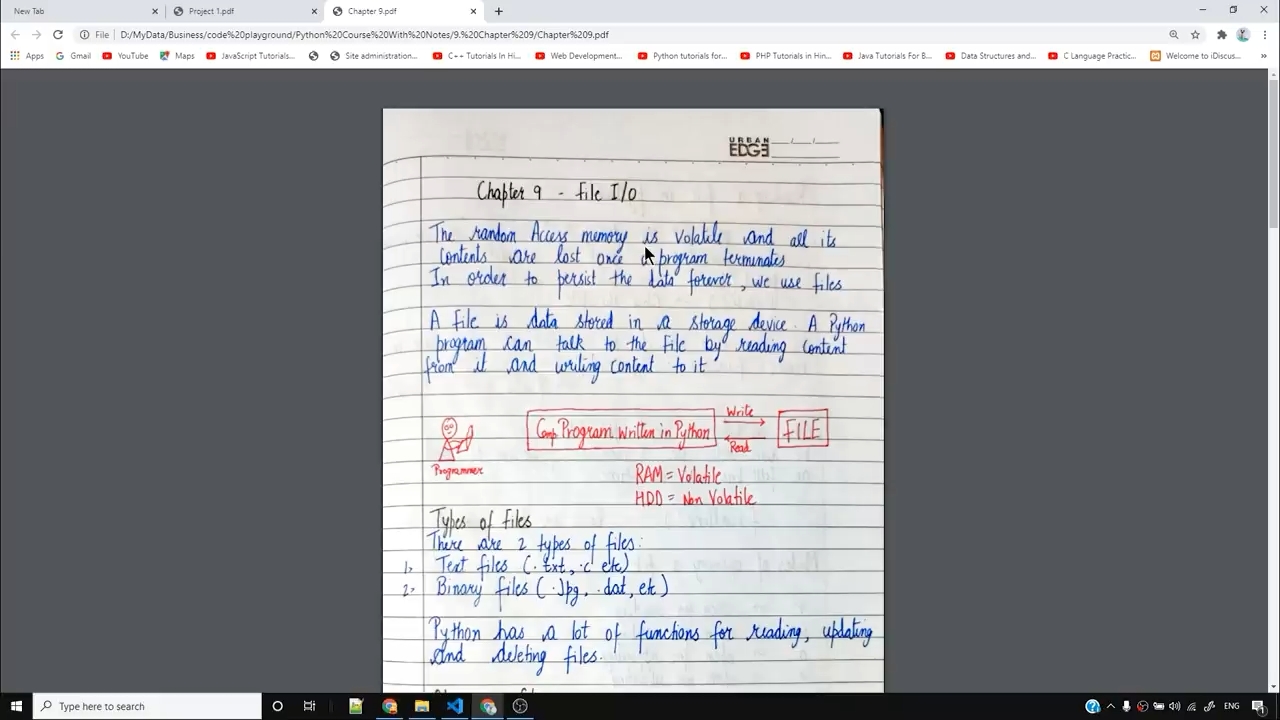 New Tab
Project 1.pdf
Chapter 9.pdf
File
D:/MyData/Business/code%20playground/Python%20Course%20With%20Notes/9.%20Chapter%209/Chapter%209.pdf
Apps
Gmail
YouTube
Maps
JavaScript Tutorials...
Site administration...
C++ Tutorials In Hi...
Web Development...
Python tutorials for...
PHP Tutorials in Hin...
Java Tutorials For B...
Data Structures and...
C Language Practic...
Welcome to iDiscus...
»
URBAN
EDGE
Chapter 9 - File I/O
The random Access memory is volatile and all its
contents are lost once a program terminates
In order to persist the data forever, we use files
A file is data stored in a storage device. A Python
program can talk to the file by reading content
from it and writing content to it
Programmer
Comp Program Written in Python
Write
Read
FILE
RAM = Volatile
HDD = Non Volatile
Types of files
There are 2 types of files:
1> Text files (.txt, .c etc)
2> Binary files (.jpg, .dat, etc)
Python has a lot of functions for reading, updating
and deleting files.
Type here to search
ENG